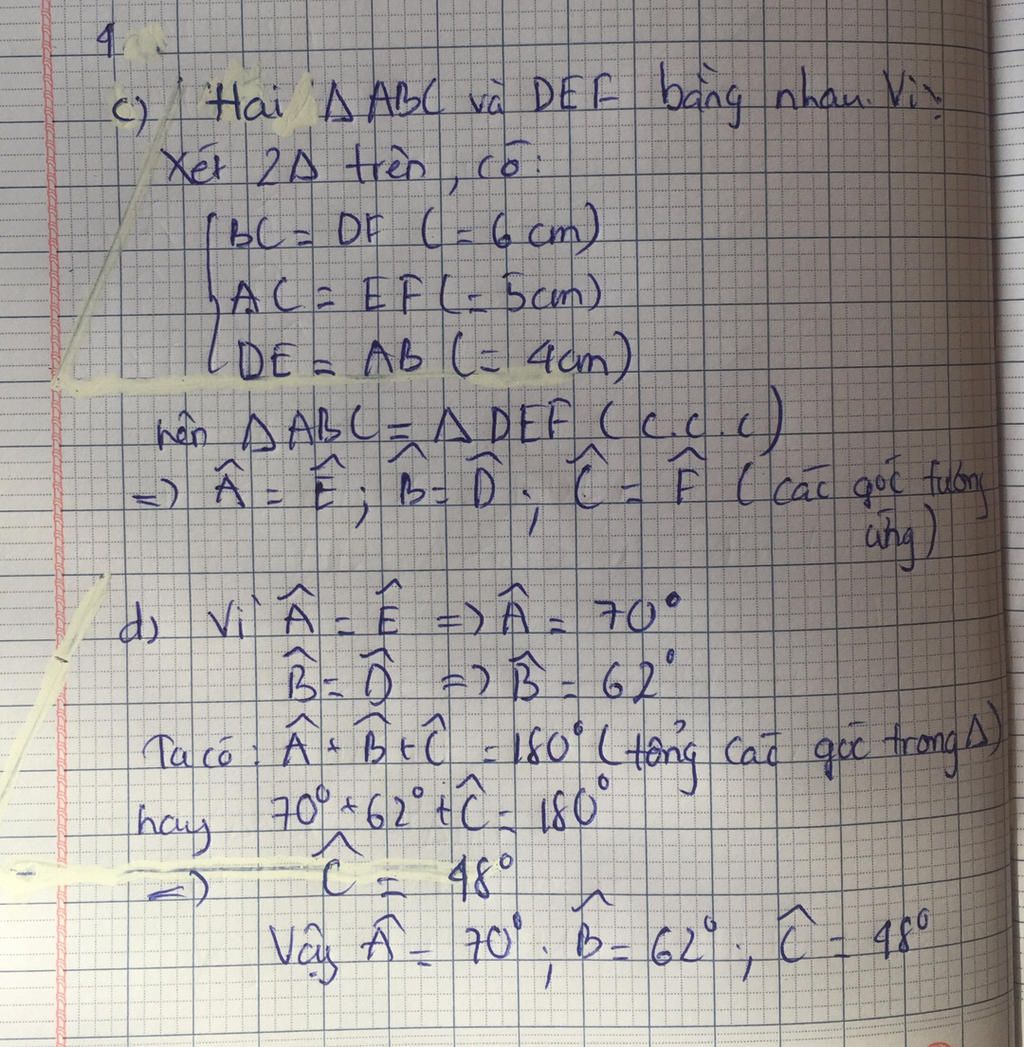 4
c) Hai Δ ABC và DEF bằng nhau. Vì:
Xét 2Δ trên, có:
BC = DF (= 6 cm)
AC = EF (= 5cm)
DE = AB (= 4cm)
nên Δ ABC = Δ DEF (c.c.c)
=> Â = Ê; B̂ = D̂; Ĉ = F̂ (các góc tương
ứng)
d) Vì Â = Ê => Â = 70°
B̂ = D̂ => B̂ = 62°
Ta có: Â + B̂ + Ĉ = 180° (tổng các góc trong Δ)
hay 70° + 62° + Ĉ = 180°
=> Ĉ = 48°
Vậy Â = 70°; B̂ = 62°; Ĉ = 48°